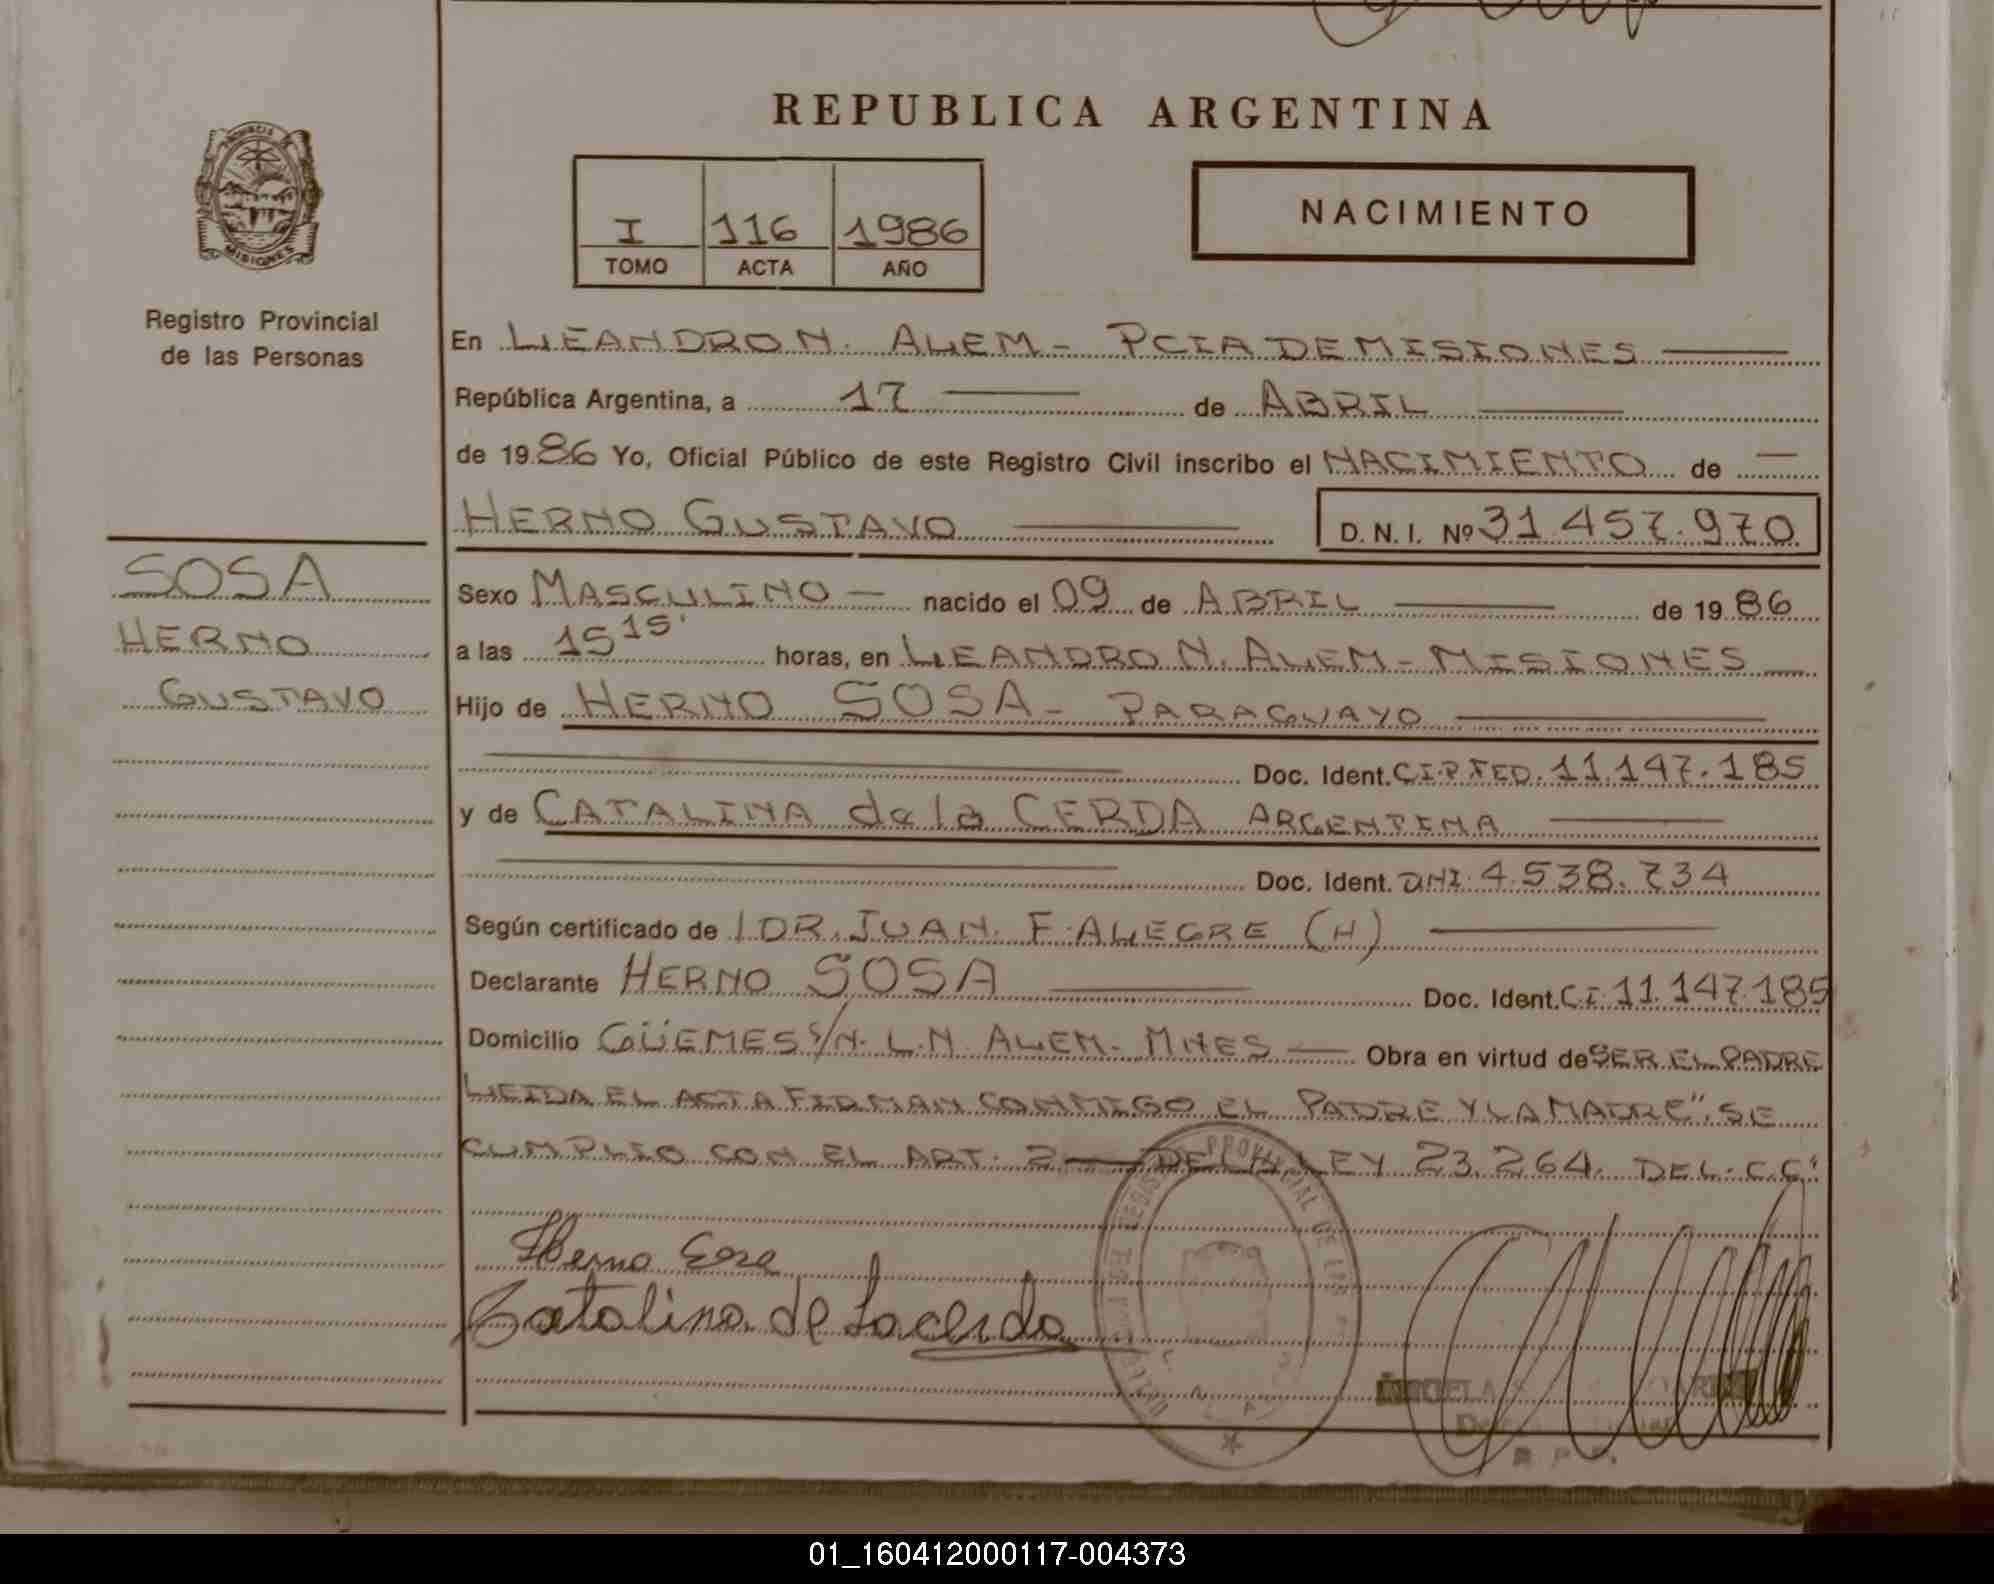 REPUBLICA ARGENTINA
PROVINCIA
MISIONES
I 116 1986
TOMO ACTA AÑO
NACIMIENTO
Registro Provincial
de las Personas
En LEANDRO N. ALEM - PCIA DE MISIONES
República Argentina, a 17 de ABRIL
de 1986 Yo, Oficial Público de este Registro Civil inscribo el NACIMIENTO de
HERNO GUSTAVO D. N. I. Nº 31.457.970
SOSA
HERNO
GUSTAVO
Sexo MASCULINO nacido el 09 de ABRIL de 1986
a las 15 15' horas, en LEANDRO N. ALEM - MISIONES
Hijo de HERNO SOSA - PARAGUAYO
Doc. Ident. C.I.P.FED. 11.147.185
y de CATALINA de la CERDA ARGENTINA
Doc. Ident. DNI 4.538.734
Según certificado de l DR. JUAN F. ALEGRE (H)
Declarante HERNO SOSA Doc. Ident. C.I. 11.147.185
Domicilio GÜEMES S/N. L.N. ALEM - MNES Obra en virtud de SER EL PADRE
LEIDA EL ACTA FIRMAN CONMIGO EL PADRE Y LA MADRE". SE
CUMPLIO CON EL ART. 2 DE LA LEY 23.264. DEL C.C"
REGISTRO PROVINCIAL DE
Herno Sosa
Catalina de Lacerda
01_160412000117-004373